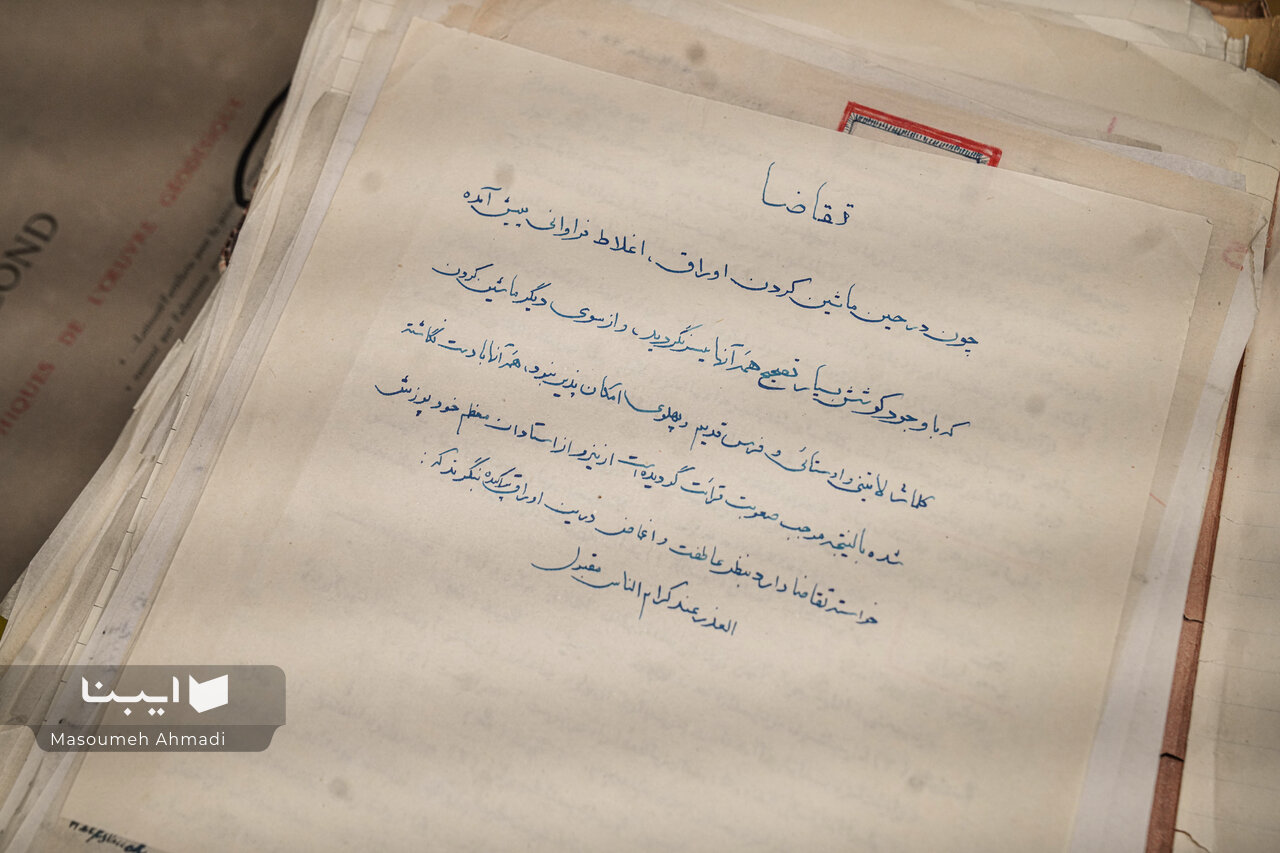 تقاضا
چون در حین ماشین کردن اوراق، اغلاط فراوانی پیش آمده
که با وجود کوشش بسیار تصحیح همهٔ آنها میسر نگردید، و از سوی دیگر ماشین کردن
کلمات لاتینی و اوستائی و فرس قدیم و پهلوی امکان پذیر نبود، همهٔ آنها با دست نگاشته
شده بالنتیجه موجب صعوبت قرائت گردیده است ازینرو از استادان معظم خود پوزش
خواسته تقاضا دارد بنظر عاطفت و اغماض درین اوراق پراکنده بنگرند که:
العذر عند کرام الناس مقبول
OND
HIQUES DE L'ŒUVRE GÉOGRAPHIQUE
ایبنا
Masoumeh Ahmadi